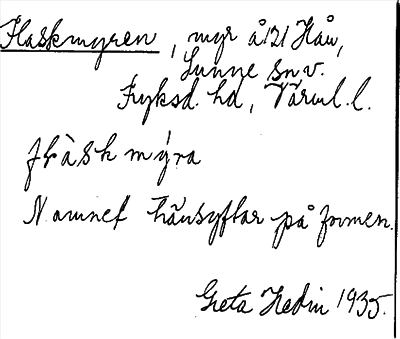 Flaskmyren, myr å 121 Håü,
Sunne sn v.
Fryksd. hd, Värml. l.
flàsk mýra
Namnet hänsyftar på formen.
Greta Hedin 1935.